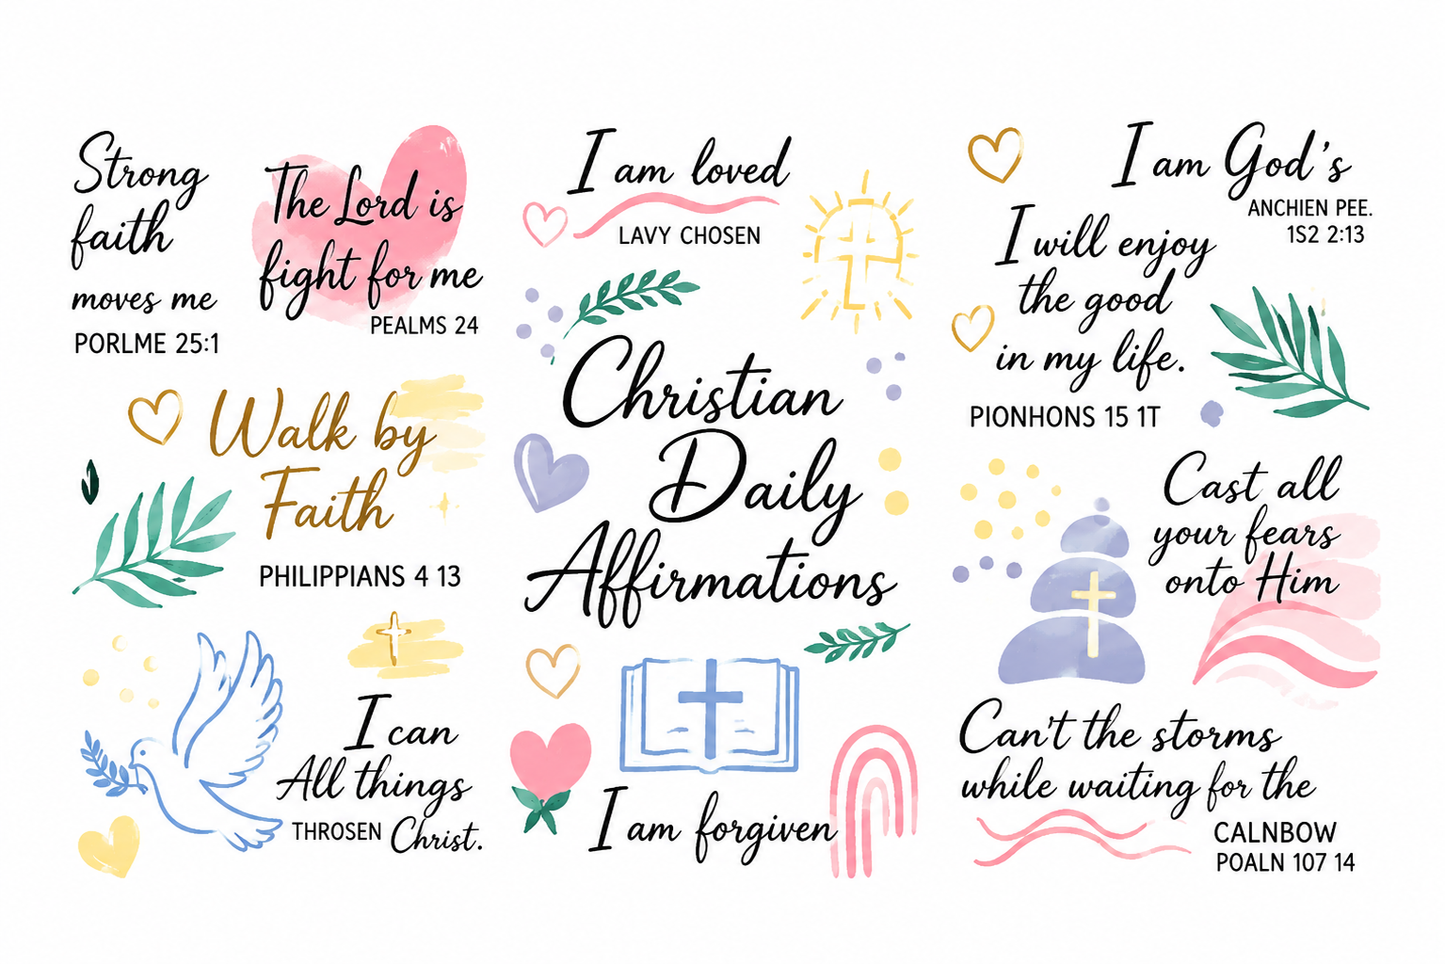 Strong
faith
moves me
PORLME 25:1
The Lord is
fight for me
PEALMS 24
Walk by
Faith
PHILIPPIANS 4 13
I can
All things
THROSEN Christ.
I am loved
LAVY CHOSEN
Christian
Daily
Affirmations
I am forgiven
I am God's
ANCHIEN PEE.
1S2 2:13
I will enjoy
the good
in my life.
PIONHONS 15 1T
Cast all
your fears
onto Him
Can't the storms
while waiting for the
CALNBOW
POALN 107 14